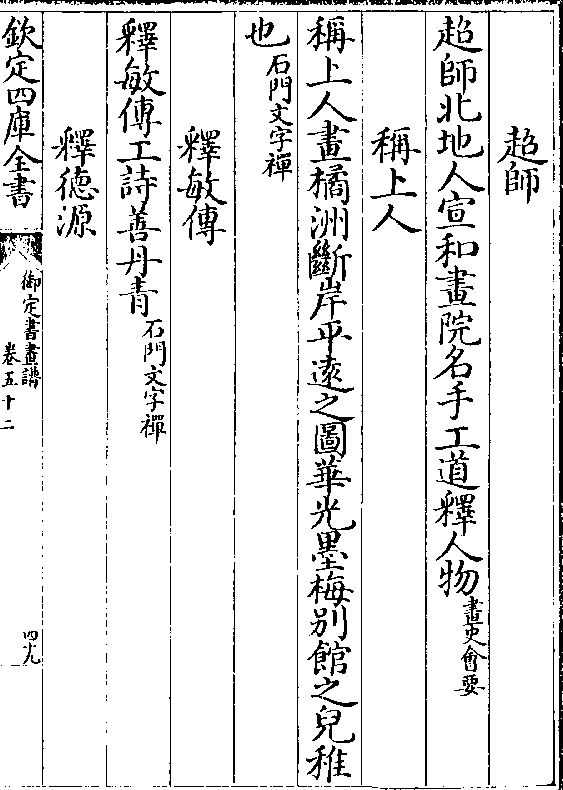 超師
超師北地人宣和畫院名手工道釋人物畫史會要
稱上人
稱上人畫橘洲斷岸平遠之圖華光墨梅別館之兒稚
也石門文字禪
釋敏傳
釋敏傳工詩善丹青石門文字禪
釋德源
欽定四庫全書
御定書畫譜
卷五十二
四十九